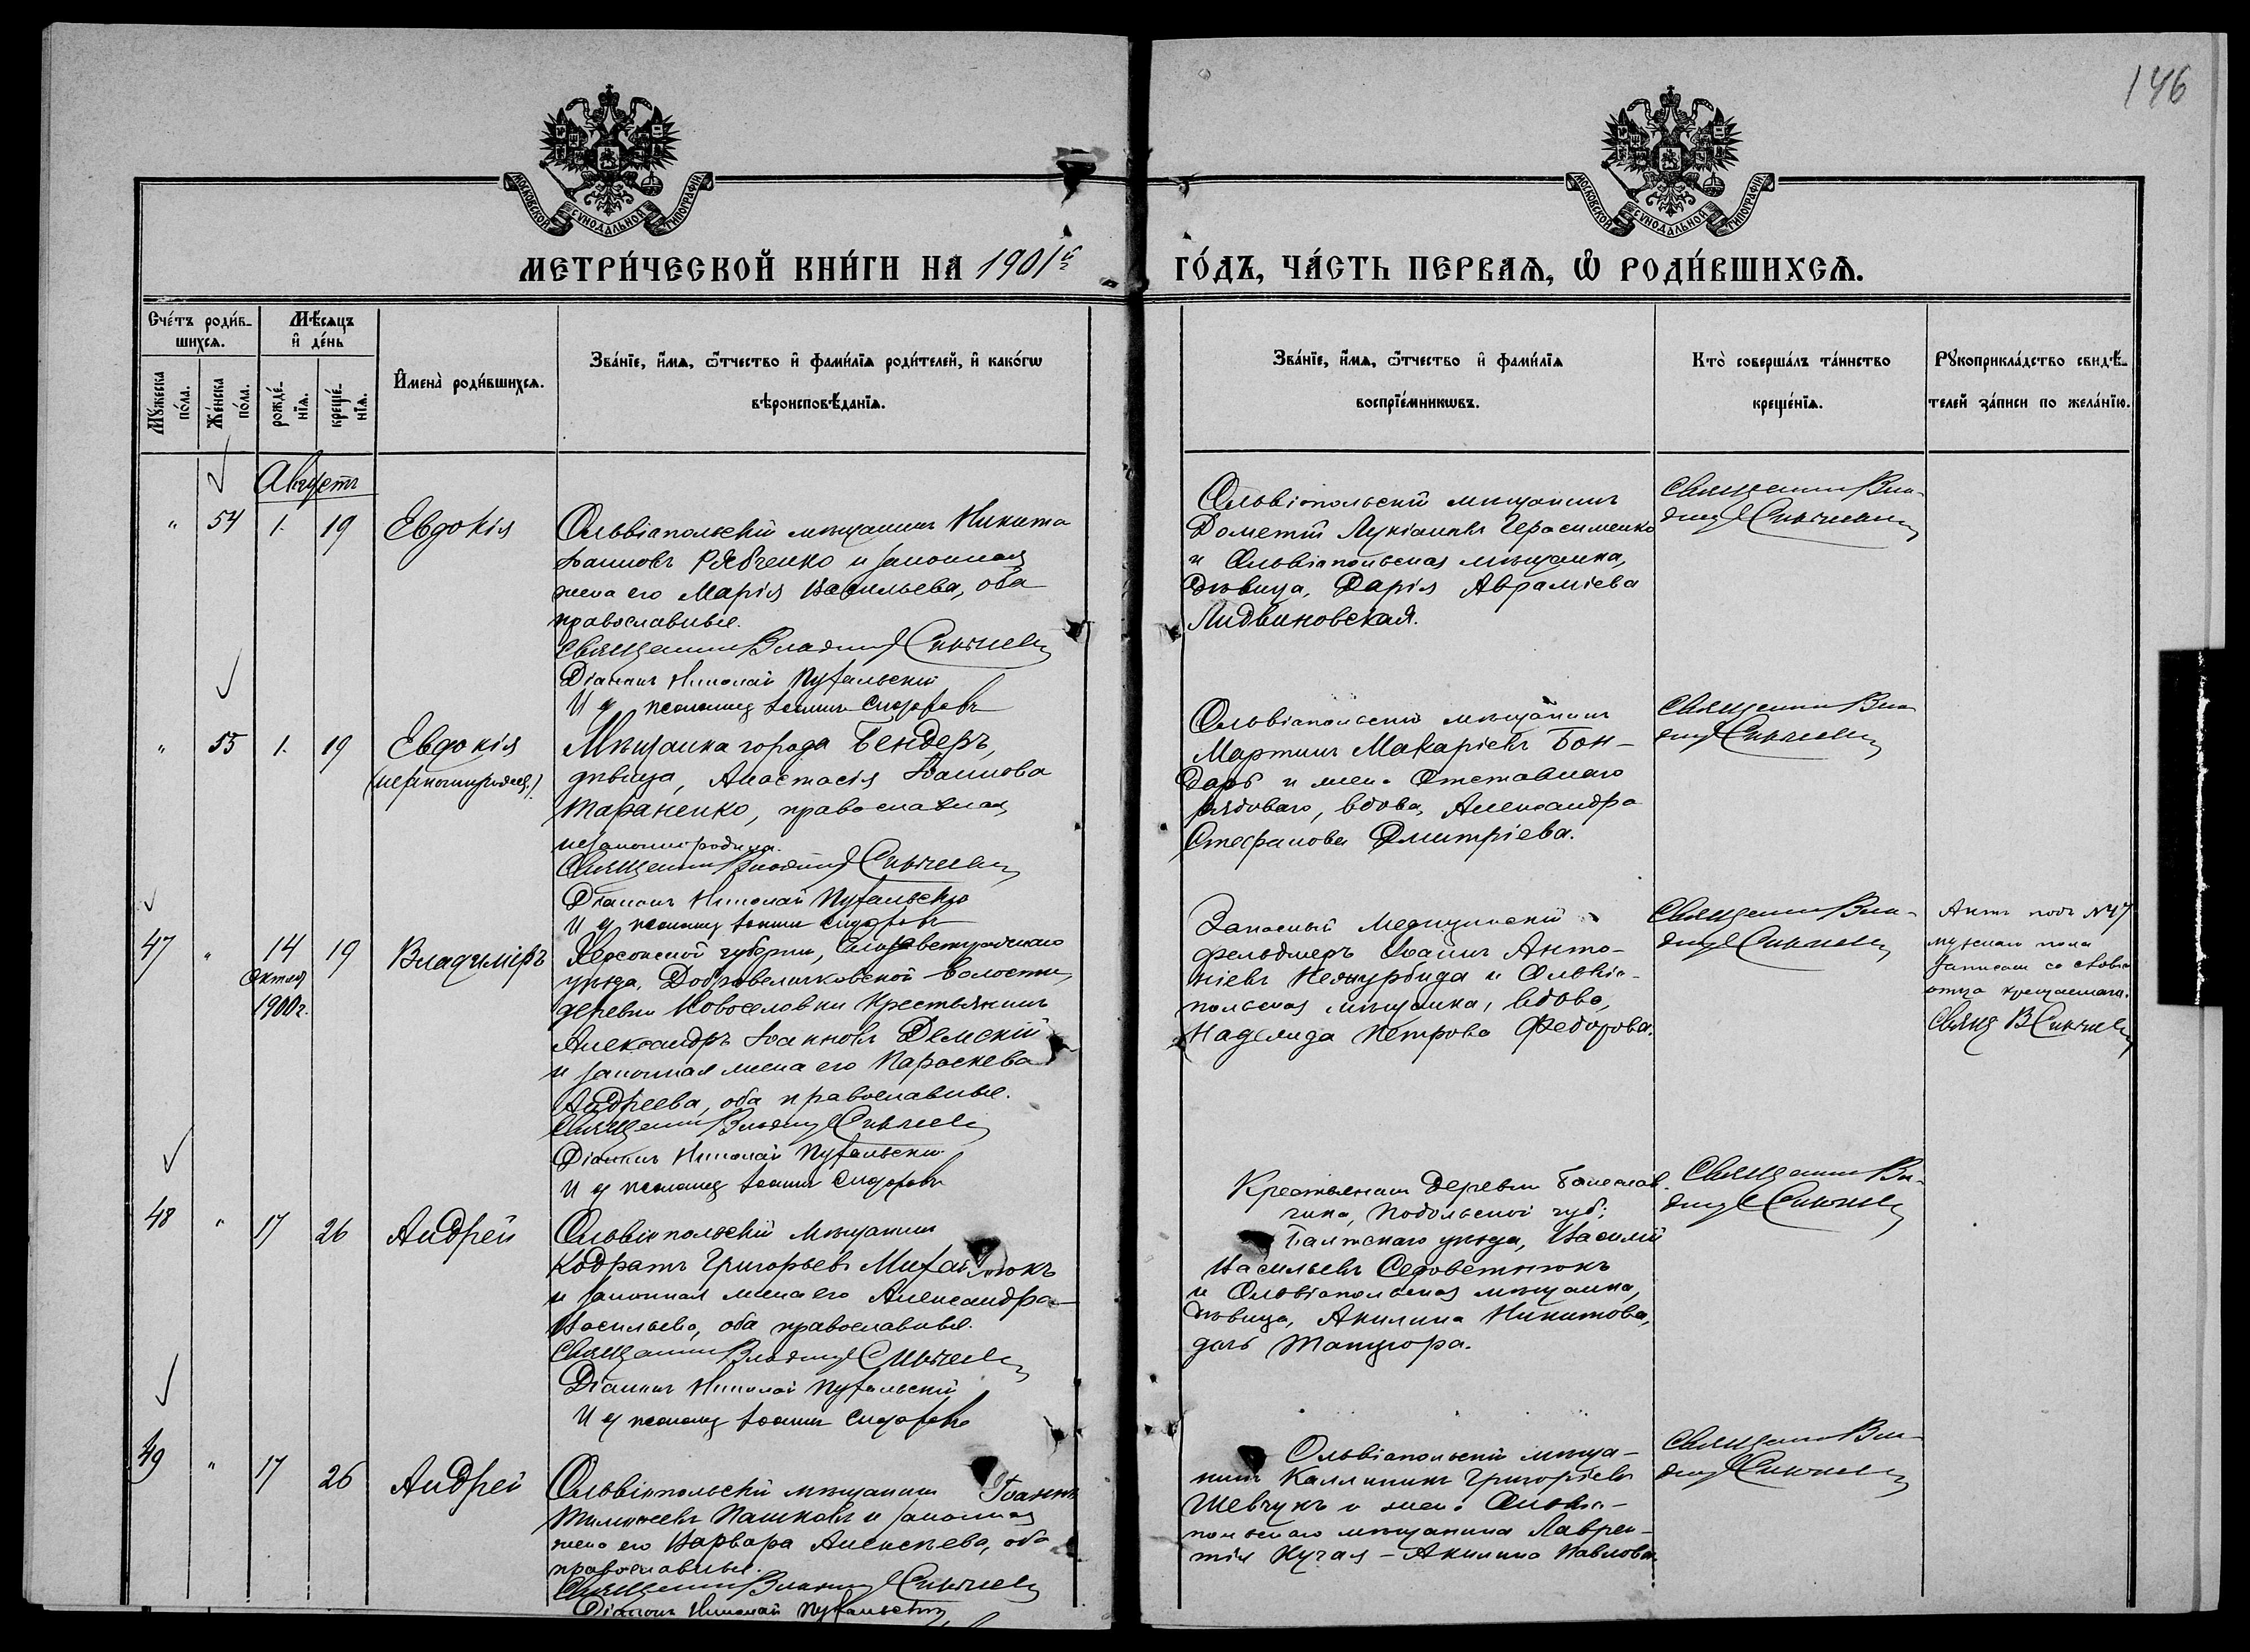 146
МОСКОВСКОЙ СѴНОДАЛЬНОЙ ТИПОГРАФІИ
МОСКОВСКОЙ СѴНОДАЛЬНОЙ ТИПОГРАФІИ
МЕТРИ́ЧЕСКОЙ КНИ́ГИ НА 1901й
ГО́ДЪ, ЧА́СТЬ ПЕРВАѦ, Ѡ҆ РОДИ́ВШИХСѦ.
Сче́тъ роди́в-
шихсѧ.
Мꙋ́жеска
по́ла.
Же́нска
по́ла.
Мѣ́сѧцъ
и҆ де́нь
рожде́-
нїѧ.
креще́-
нїѧ.
И҆мена̀ роди́вшихсѧ.
Зва́нїе, и҆́мѧ, ѻ҆́тчество и҆ фами́лїѧ роди́телей, и҆ како́гѡ
вѣроисповѣ́данїѧ.
Зва́нїе, и҆́мѧ, ѻ҆́тчество и҆ фами́лїѧ
воспрїе́мникѡвъ.
Кто̀ соверша́лъ та́инство
креще́нїѧ.
Рꙋкоприкла́дство свидѣ́-
телей за́писи по жела́нїю.
Августъ
" 54 1. 19 Евдокія
Ольвіопольскій мѣщанинъ Никита
Іоанновъ Рябченко и законная
жена его Марія Васильева, оба
православные.
Священникъ Владимір Синьчевъ
Діаконъ Николай
И д псаломщ Іоаннъ Сидоровъ
Ольвіопольскій мѣщанинъ
Дометій Лукіановъ Герасименко
и Ольвіопольская мѣщанка,
дѣвица, Дарія Авраміева
Лидвиновская.
Священникъ Вла-
димір
" 55 1. 19 Евдокія
(незаконнорожд.)
Мѣщанка города Бендеръ,
дѣвица, Анастасія Іоаннова
Тараненко, православная,
незаконнородила.
Священникъ Владимір
Діаконъ Николай
И д псаломщ Іоаннъ Сидоровъ
Ольвіопольскій мѣщанинъ
Мартинъ Макаріевъ Бон-
дарь и жена отставнаго
рядоваго, вдова, Александра
Стефанова Дмитріева.
Священникъ Вла-
димір
47 " 14 19 Владиміръ
Октяб
1900г.
Херсонской губерніи, Елизаветградскаго
уѣзда, Добровеличковской волости,
деревни Новоселовки крестьянинъ
Александръ Іоанновъ Демскій
и законная жена его Параскева
Андреева, оба православные.
Священникъ Владимір
Діаконъ Николай
И д псаломщ Іоаннъ Сидоровъ
Запасный Медицинскій
фельдшеръ Іоаннъ Анто-
ніевъ и Ольвіо-
польская мѣщанка, вдова,
Надежда Петрова Федорова.
Священникъ Вла-
димір
Актъ подъ №47
мужскаго пола
записанъ со словъ
отца крещаемаго.
Свящ В
48 " 17 26 Андрей
Ольвіопольскій мѣщанинъ
Кодратъ Григорьевъ Михайлюкъ
и законная жена его Александра
Васильева, оба православные.
Священникъ Владимір
Діаконъ Николай
И д псаломщ Іоаннъ Сидоровъ
Крестьянинъ деревни Болеслав-
чика, Подольской губ:
Балтскаго уѣзда, Василій
Васильевъ
и Ольвіопольская мѣщанка,
дѣвица, Акилина Никитова,
дочь
Священникъ Вла-
димір
49 " 17 26 Андрей
Ольвіопольскій мѣщанинъ Іоаннъ
Тимофеевъ Пашковъ и законная
жена его Варвара Алексѣева, оба
православные.
Священникъ Владимір
Діаконъ Николай
Ольвіопольскій мѣща-
нинъ Каллиникъ Григоріевъ
Шевчукъ и жена Ольвіо-
польскаго мѣщанина Лаврен-
тія – Акилина Павлова
Священникъ Вла-
димір